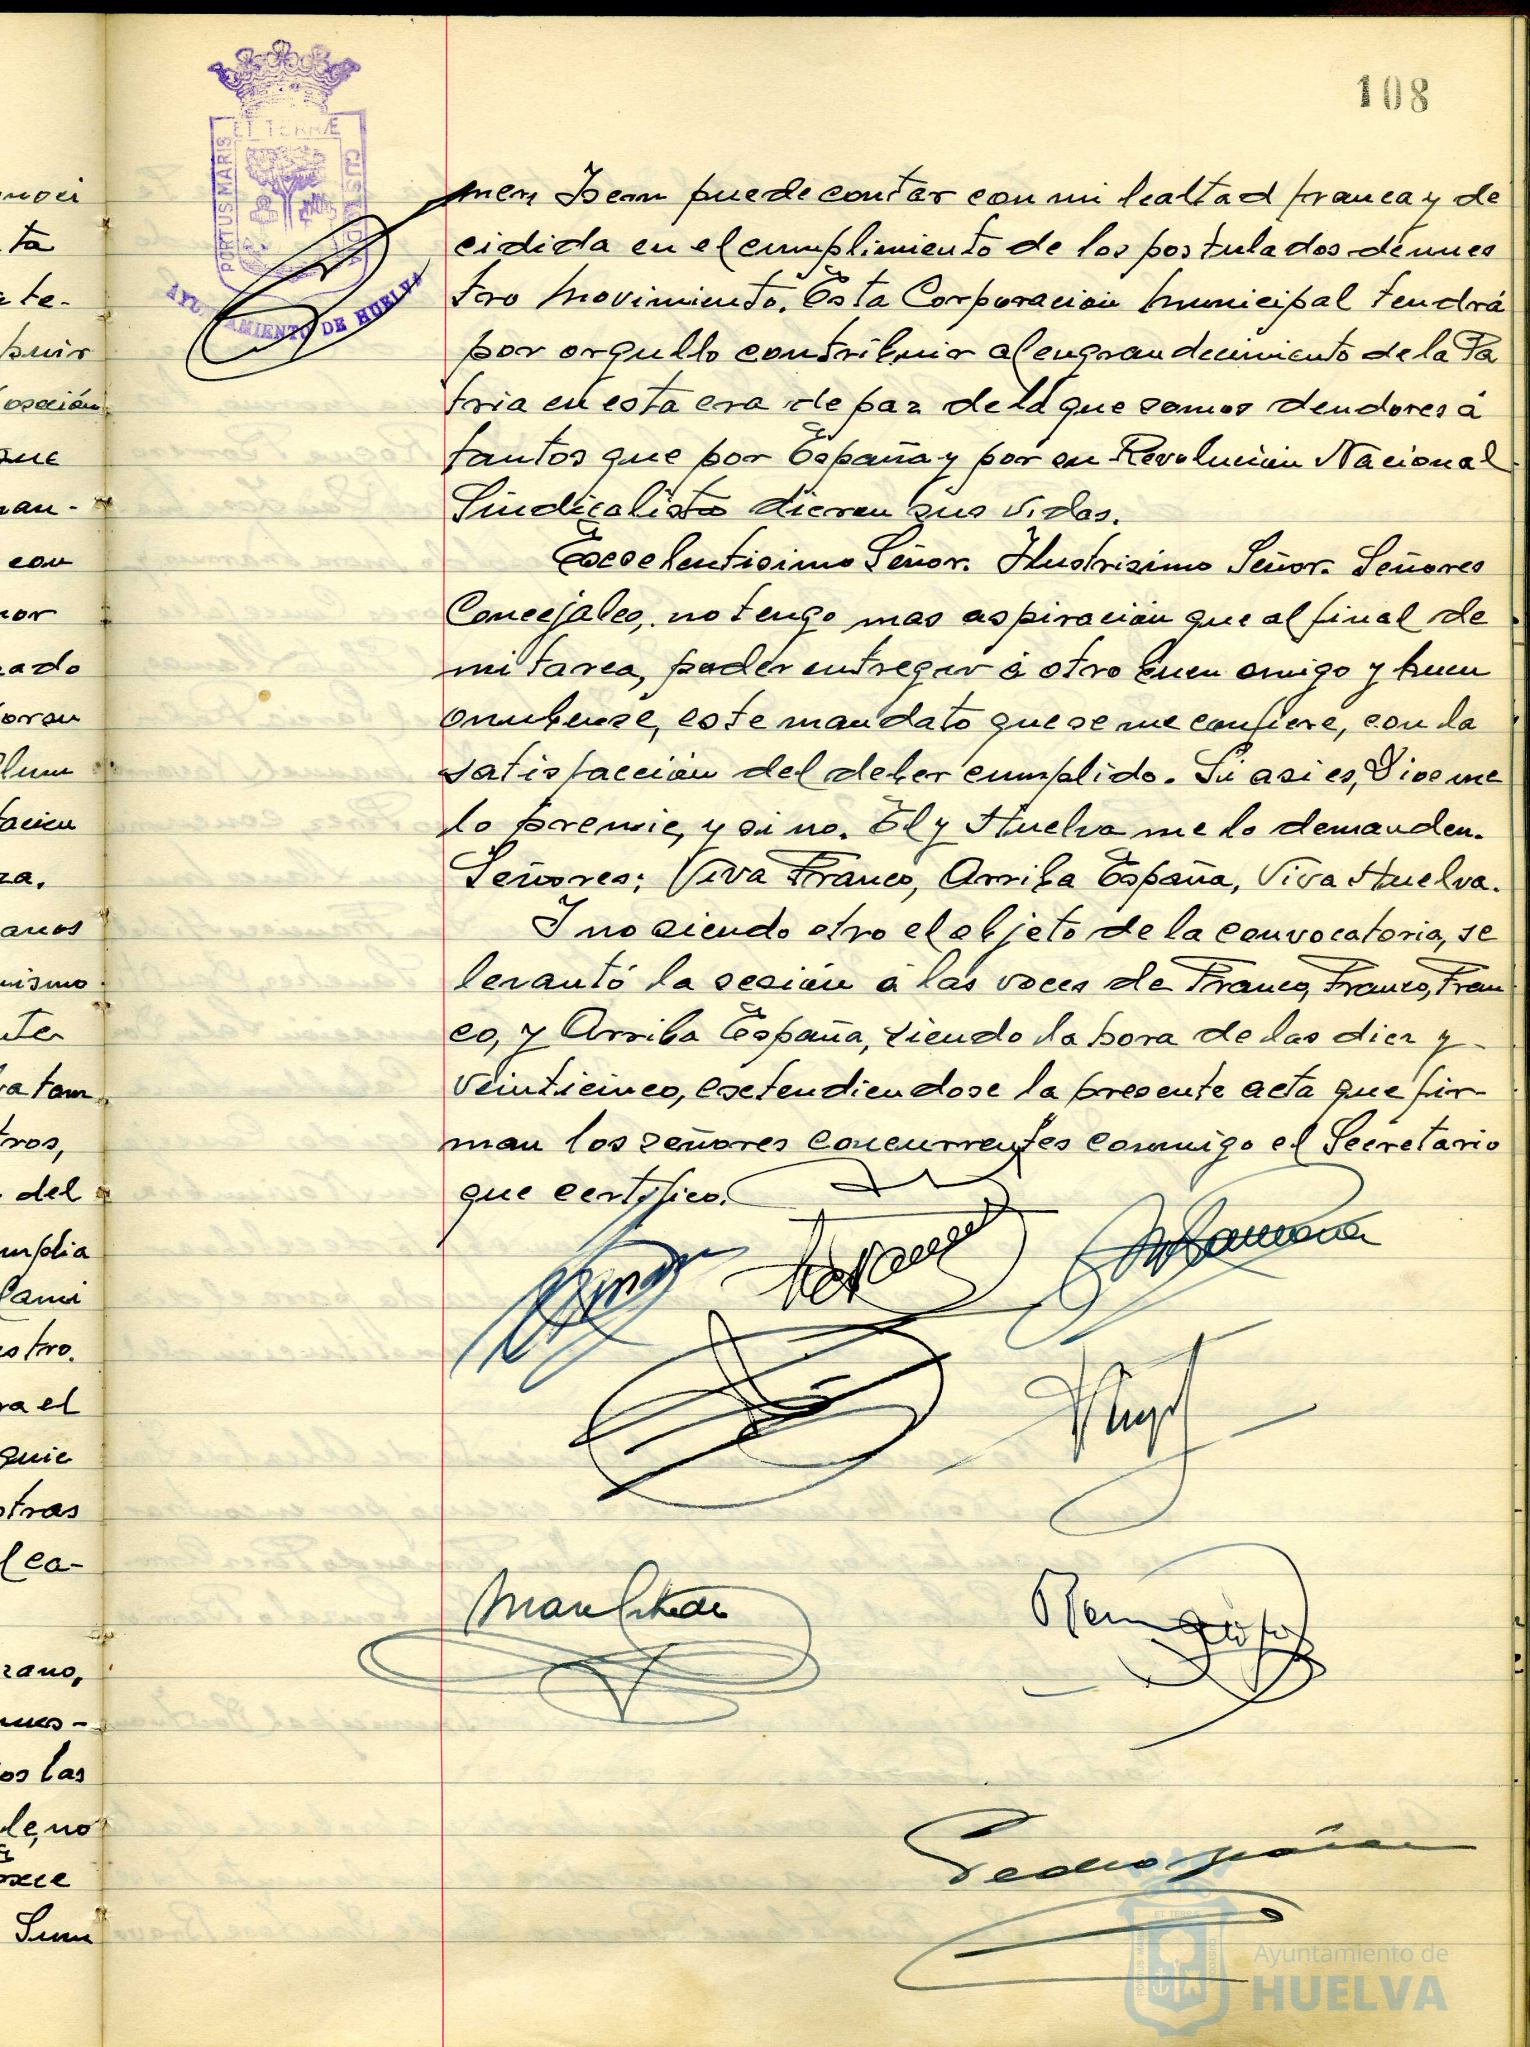 108
ET TERRÆ
PORTUS MARIS
CUSTODIA
AYUNTAMIENTO DE HUELVA
men, Isern puede contar con mi lealtad franca y de
cidida en el cumplimiento de los postulados de nues
tro Movimiento. Esta Corporación Municipal tendrá
por orgullo contribuir al engrandecimiento de la Pa
tria en esta era de paz de la que somos deudores á
tantos que por España y por su Revolución Nacional
Sindicalista dieron sus vidas.
Excelentisimo Señor. Ilustrisimo Señor. Señores
Concejales, no tengo mas aspiración que al final de
mi tarea, poder entregar á otro buen amigo y buen
onubense, este mandato que se me confiere, con la
satisfacción del deber cumplido. Si asi es, Dios me
lo premie, y si no. El y Huelva me lo demanden.
Señores: Viva Franco, Arriba España, Viva Huelva.
Y no siendo otro el objeto de la convocatoria, se
levantó la sesión á las voces de Franco, Franco, Fran
co, y Arriba España, siendo la hora de las diez y
veinticinco, extendiendose la presente acta que fir-
man los señores concurrentes conmigo el Secretario
que certifico.
ta
te-
que
con
ado
za.
anos
mismo
tros,
del
ra el
tras
ca-
zano,
os las
le, no
Ayuntamiento de
HUELVA